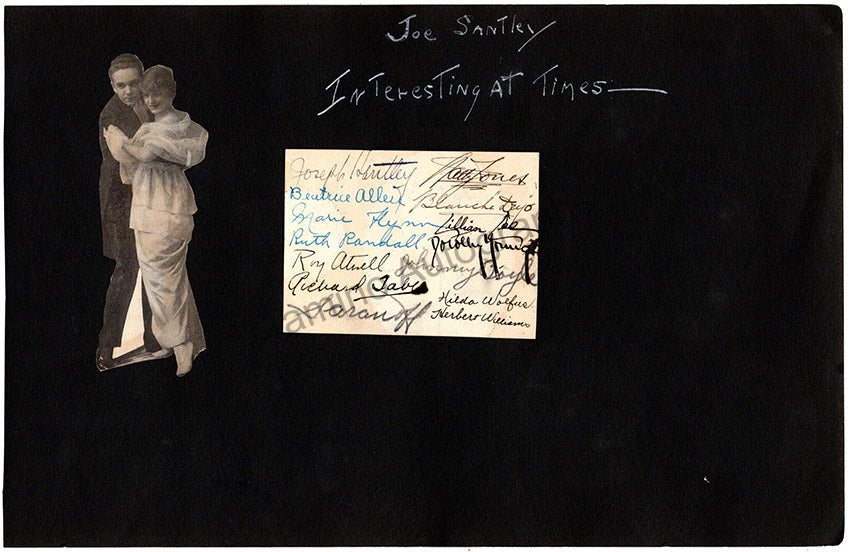 Joe Santley
Interesting at Times—
Joseph Santley
Beatrice Allen Blanche Deyo
Marie Flynn Lillian
Ruth Randall, Dorothy
Roy Atwell Johnny Doyle
Richard Taber
Hilda Wolfus
Taranoff Herbert Williams